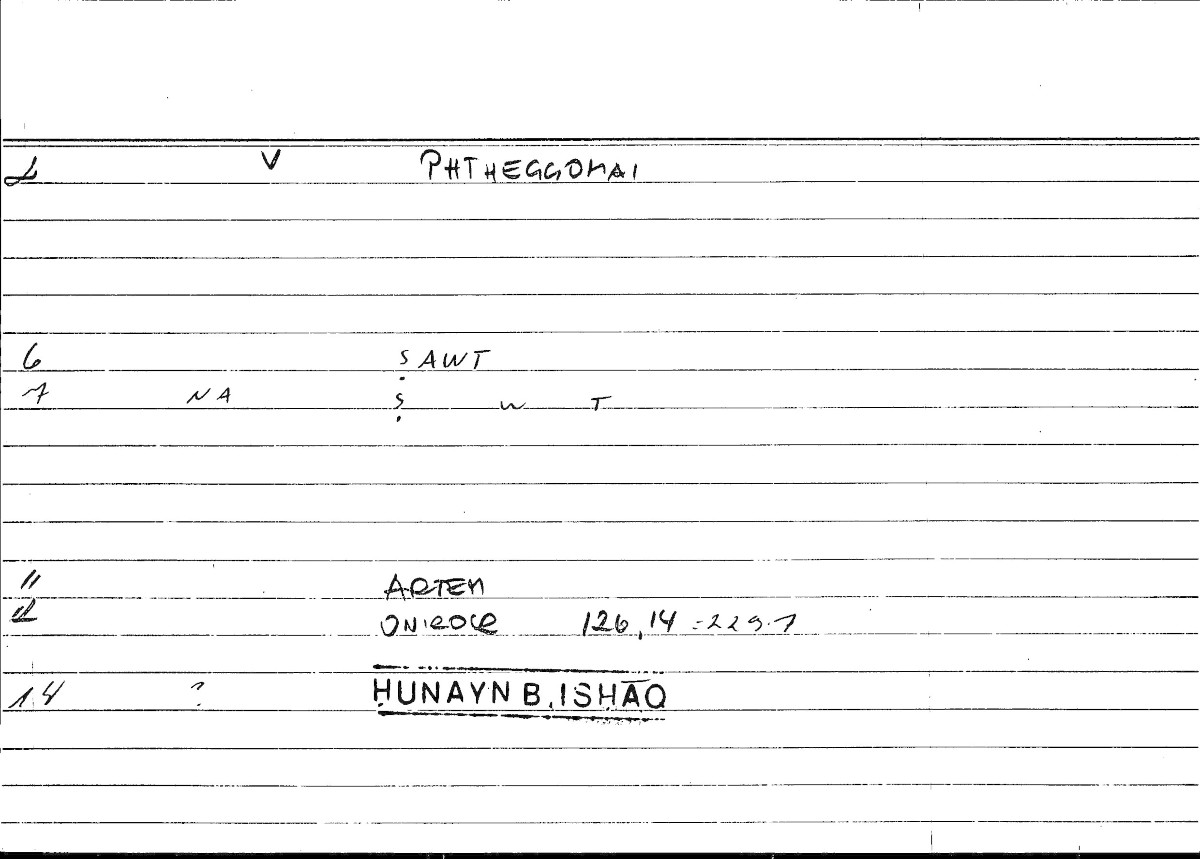 2 V PHTHEGGOMAI
6 ṢAWT
7 NA Ṣ W T
11 ARTEM
12 ONIROCR 126,14 = 229.7
14 ? ḤUNAYN B. ISḤĀQ